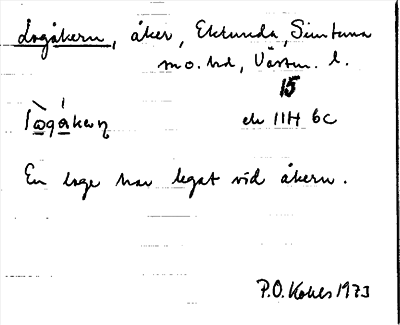 Logåkern, åker, Ekkunda, Simtuna
sn o. hd, Västm. l.
15
ek 11H 6c
En loge har legat vid åkern.
P.O. 1973